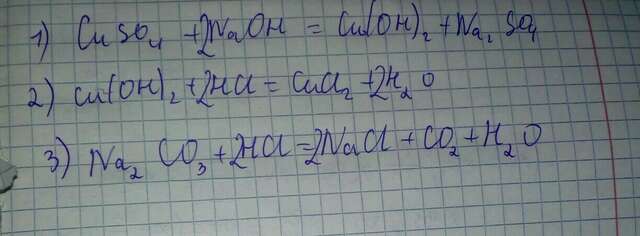 1) CuSO₄ + 2NaOH = Cu(OH)₂ + Na₂SO₄
2) Cu(OH)₂ + 2HCl = CuCl₂ + 2H₂O
3) Na₂CO₃ + 2HCl = 2NaCl + CO₂ + H₂O